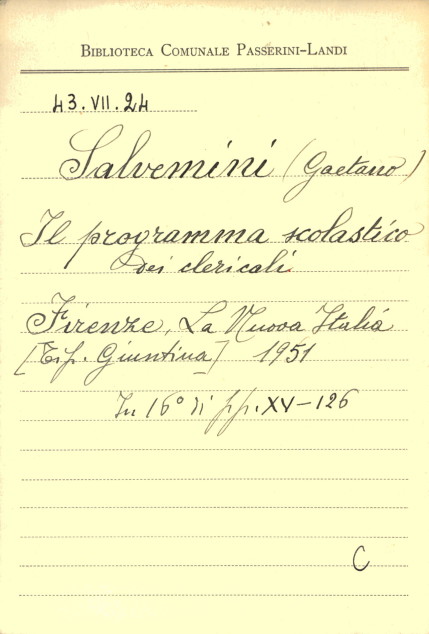 BIBLIOTECA COMUNALE PASSERINI-LANDI
43.VII.24
Salvemini (Gaetano)
Il programma scolastico
dei clericali.
Firenze, La Nuova Italia
[Tip. Giuntina] 1951
In 16° di pp. XV-126
C